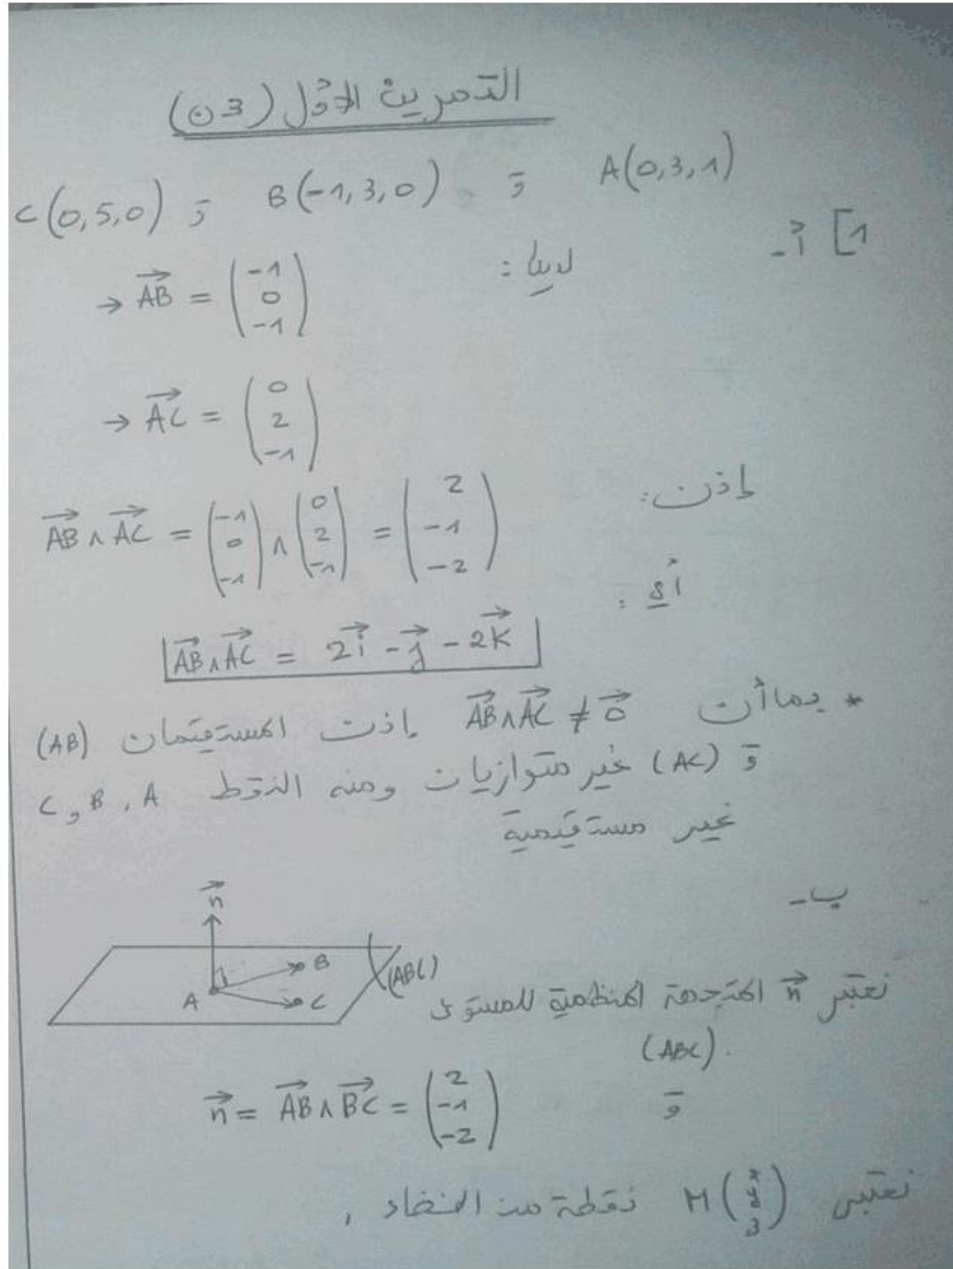 التمرين الأول (3 ن)
A(0,3,1) و B(-1,3,0) و C(0,5,0)
1] أ-
لدينا :
→ $\overrightarrow{AB} = \begin{pmatrix} -1 \\ 0 \\ -1 \end{pmatrix}$
→ $\overrightarrow{AC} = \begin{pmatrix} 0 \\ 2 \\ -1 \end{pmatrix}$
إذن:
$\overrightarrow{AB} \wedge \overrightarrow{AC} = \begin{pmatrix} -1 \\ 0 \\ -1 \end{pmatrix} \wedge \begin{pmatrix} 0 \\ 2 \\ -1 \end{pmatrix} = \begin{pmatrix} 2 \\ -1 \\ -2 \end{pmatrix}$
أي :
$\overrightarrow{AB} \wedge \overrightarrow{AC} = 2\vec{i} - \vec{j} - 2\vec{k}$
* بما أن $\overrightarrow{AB} \wedge \overrightarrow{AC} \neq \vec{0}$ إذن المستقيمان (AB)
و (AC) غير متوازيان ومنه النقط A , B و C
غير مستقيمية
ب-
$\vec{n}$
A
B
C
(ABC)
نعتبر $\vec{n}$ المتجهة المنظمية للمستوى
(ABC).
و $\vec{n} = \overrightarrow{AB} \wedge \overrightarrow{BC} = \begin{pmatrix} 2 \\ -1 \\ -2 \end{pmatrix}$
نعتبر $M\begin{pmatrix} x \\ y \\ z \end{pmatrix}$ نقطة من الفضاء ,